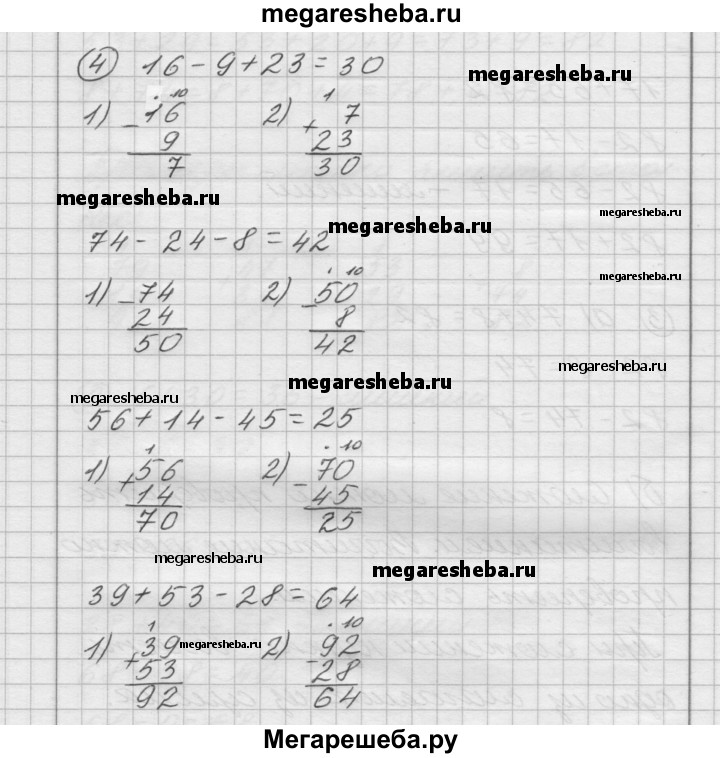 megaresheba.ru
④ 16 - 9 + 23 = 30
megaresheba.ru
1) 16 - 9 = 7 2) 7 + 23 = 30
megaresheba.ru
megaresheba.ru
megaresheba.ru
74 - 24 - 8 = 42
megaresheba.ru
1) 74 - 24 = 50 2) 50 - 8 = 42
megaresheba.ru
megaresheba.ru
megaresheba.ru
56 + 14 - 45 = 25
1) 56 + 14 = 70 2) 70 - 45 = 25
megaresheba.ru
megaresheba.ru
39 + 53 - 28 = 64
1) 39 + 53 = 92 megaresheba.ru 2) 92 - 28 = 64
Мегарешеба.ру